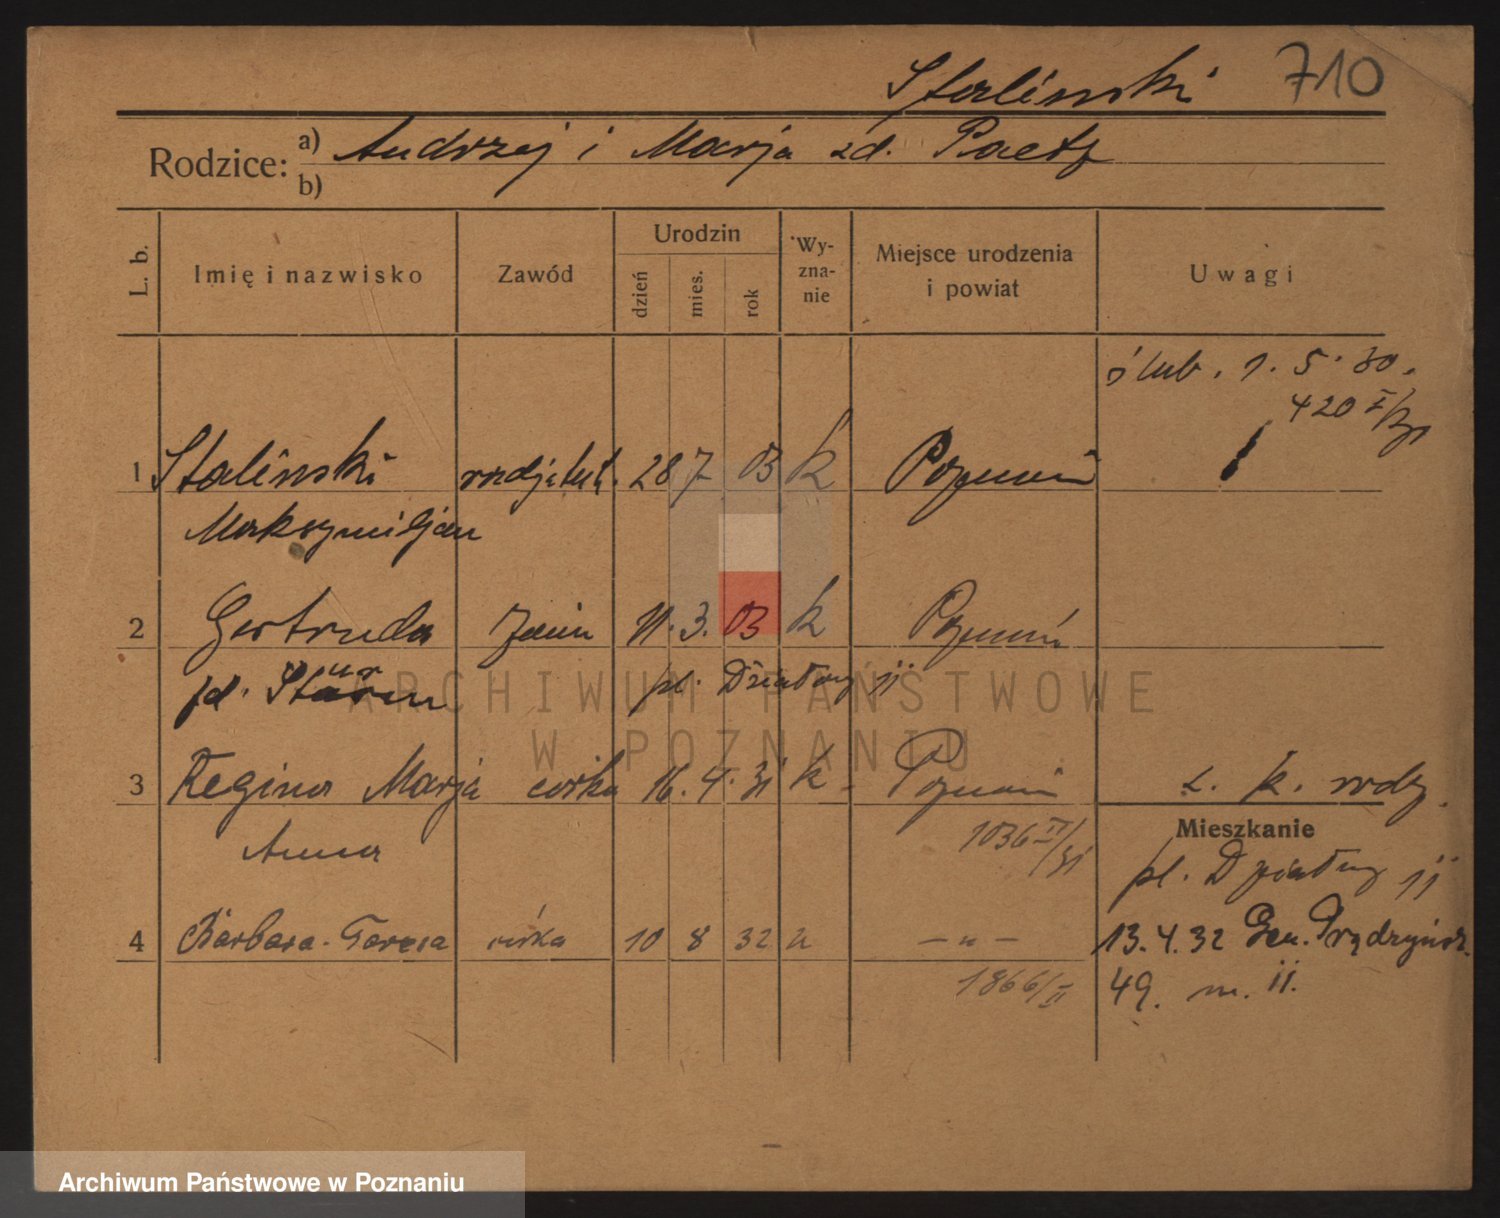 Stalinski 710
Rodzice: a) Andrzej i Marja zd. Paetz
b)
L. b. Imię i nazwisko Zawód Urodzin dzień mies. rok Wyznanie Miejsce urodzenia i powiat Uwagi
ślub. 1. 5. 30.
420 I/30
1 Stalinski 28 7 03 k Poznań
Maksymiljan
2 Gertruda żona 11. 3. 03 k Poznań
zd. Stürm pl. Działowy 11
3 Regina Marja córka 16. 4. 31 k Poznań z. k. rodz.
Anna 1036 II/31
Mieszkanie
pl. Działowy 11
4 Barbara-Teresa córka 10 8 32 k — " — 13.4.32 Gen. Prądzyńsk.
1866/II 49. m. 11.
ARCHIWUM PAŃSTWOWE
W POZNANIU
Archiwum Państwowe w Poznaniu